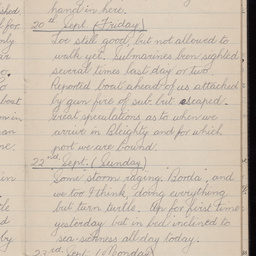 hand in here.
20th Sept. (Friday)
Too still good, but not allowed to
walk yet. Submarines been sighted
several times last day or two.
Reported boat ahead of us attached
by gun fire of sub. but escaped.
Great speculations as to when we
arrive in Bleighty and for which
port we are bound.
22nd Sept. (Sunday)
Some storm edging. Borda, and
we too I think, doing everything
but turn turtle. Up for first time
yesterday but in bed inclined to
sea-sickness all day today.
23rd Sept. (Monday)